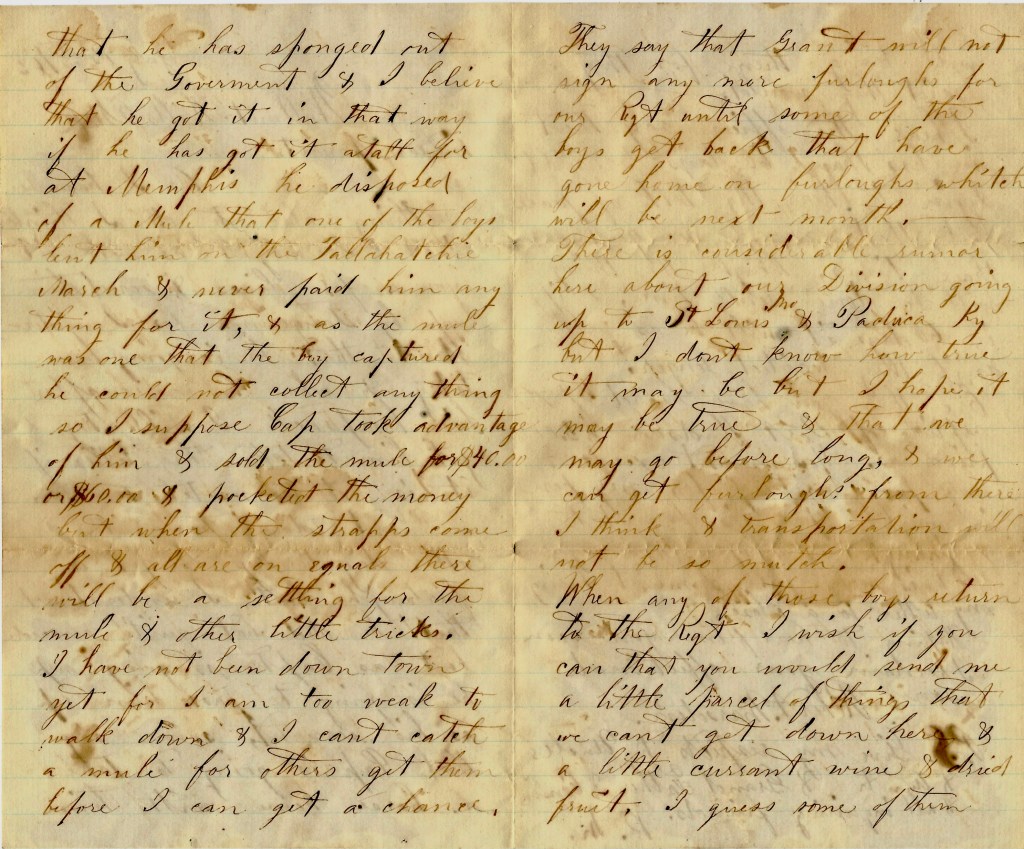 that he has sponged out
of the Goverment & I believe
that he got it in that way
if he has got it atall for
at Memphis he disposed
of a Mule that one of the boys
lent him on the Tallahatchie
March & never paid him any
thing for it, & as the mule
was one that the boy captured
he could not collect any thing
so I suppose Cap took advantage
of him & sold the mule for $40.00
or $60.00 & pocketed the money
but when the strapps come
off & all are on equals there
will be a settling for the
mule & other little tricks.
I have not been down town
yet for I am too weak to
walk down & I cant catch
a mule for others get them
before I can get a chance.
They say that Grant will not
sign any more furloughs for
our Rgt until some of the
boys get back that have
gone home on furloughs whitch
will be next month.
There is considerable rumor
here about our Division going
up to St Lowis Mo & Paduca Ky
but I dont know how true
it may be but I hope it
may be true & that we
may go before long, & we
can get furloughs from there
I think & transportation will
not be so mutch.
When any of those boys return
to the Rgt I wish if you
can that you would send me
a little parcel of things that
we cant get down here &
a little currant wine & dried
fruit. I guess some of them